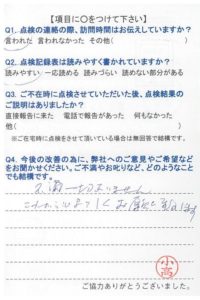 【項目に〇をつけて下さい】
Q1. 点検の連絡の際、訪問日時はお伝えしていますか?
言われた 言われなかった その他( )
Q2. 点検記録表は読みやすく書かれていますか?
読みやすい 一応読める 読みづらい 読めない部分がある
Q3. ご不在時に点検させていただいた後、点検結果の
ご説明はありましたか?
直接報告に来た 電話で報告があった 何もなかった
他( )
※ご在宅時に点検をさせて頂いている場合は無回答で結構です。
Q4. 今後の改善の為に、弊社へのご意見やご希望など
をお聞かせください。ご不満やお叱りなど、どのようなこと
でも結構です。
不満一切ありません
小高
ご協力ありがとうございました。